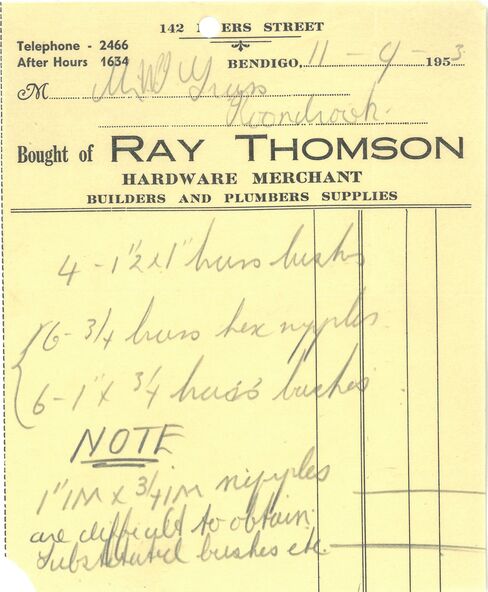 142 ERS STREET
Telephone - 2466
After Hours 1634
BENDIGO, 11 - 9 - 1953
M
Bought of RAY THOMSON
HARDWARE MERCHANT
BUILDERS AND PLUMBERS SUPPLIES
4 - 1"x1" brass bushs
6 - 3/4 brass hex nypples
6 - 1" x 3/4 brass bushes
NOTE
1" IM x 3/4 IM nipples
are difficult to obtain
substituted bushes etc.